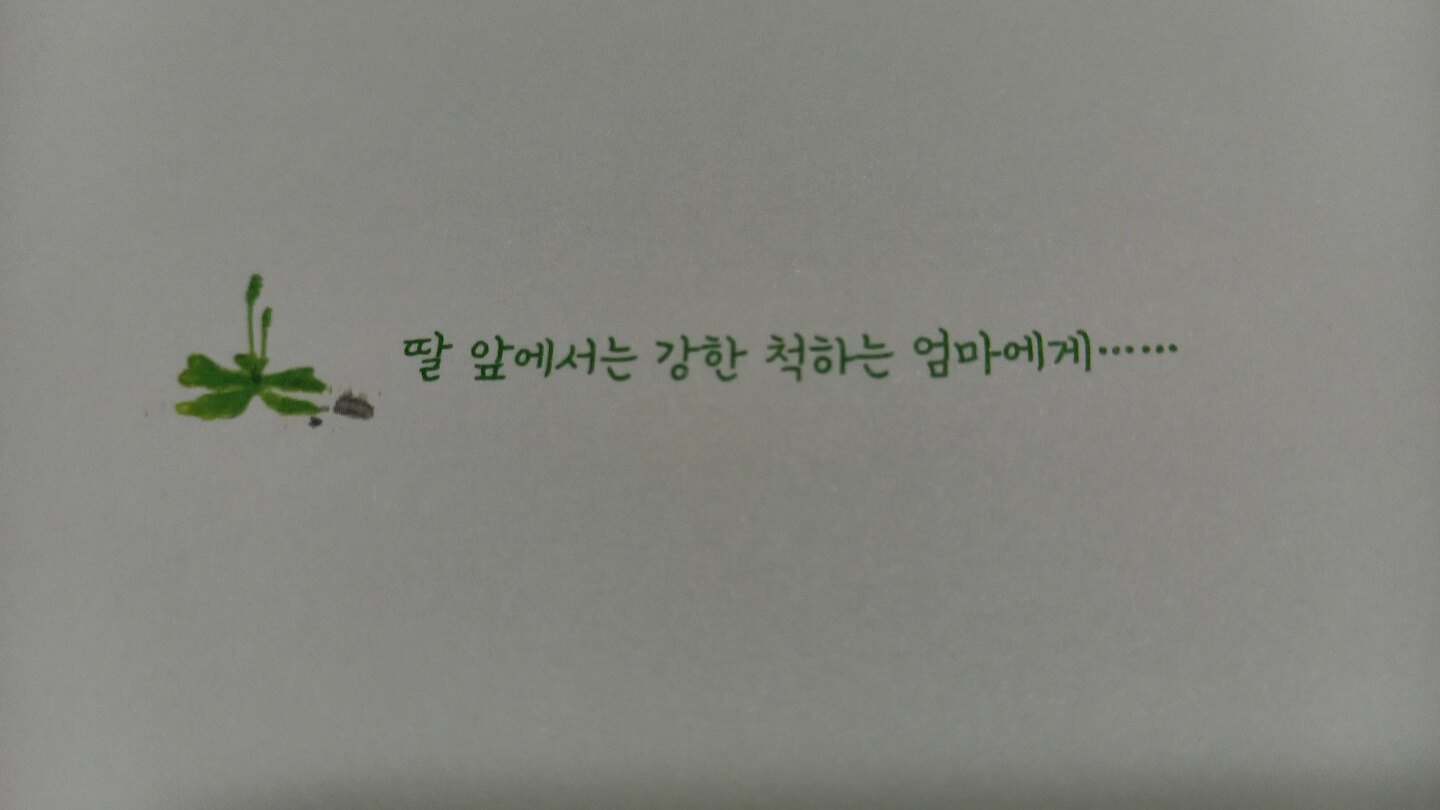 딸 앞에서는 강한 척하는 엄마에게……